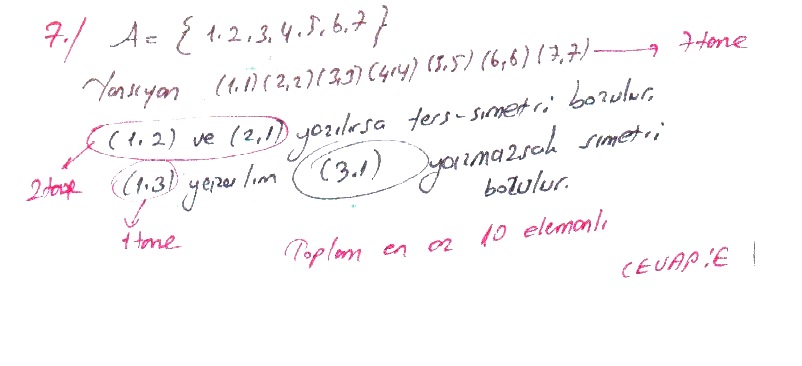 7./ A = { 1.2.3.4.5.6.7 }
Yansıyan (1,1) (2,2) (3,3) (4,4) (5,5) (6,6) (7,7) → 7 tane
(1,2) ve (2,1) yazılırsa ters-simetri bozulur.
2 tane (1,3) yazalım (3,1) yazmazsak simetri bozulur.
1 tane
Toplam en az 10 elemanlı
CEVAP:E